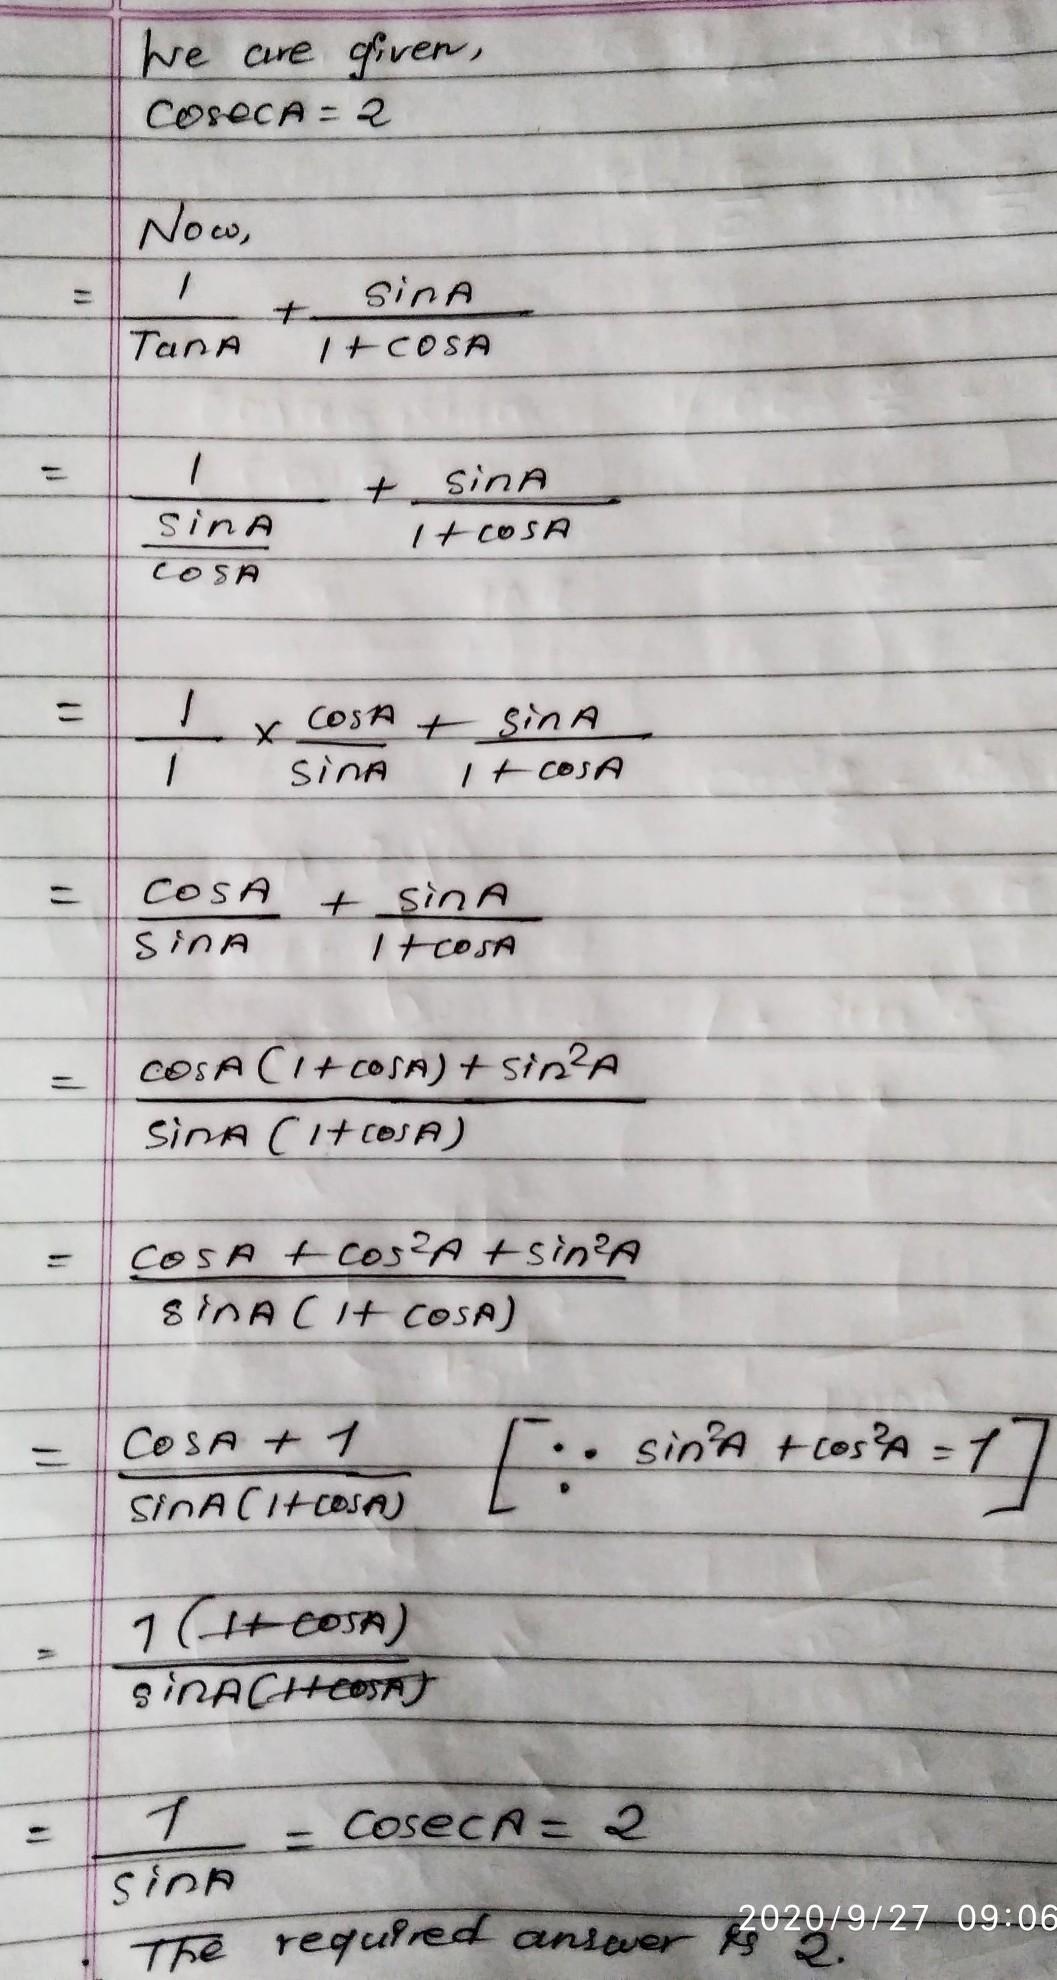 We are given,
cosecA = 2
Now,
= 1/TanA + sinA/1+cosA
= 1/(sinA/cosA) + sinA/1+cosA
= 1/1 × cosA/sinA + sinA/1+cosA
= cosA/sinA + sinA/1+cosA
= cosA(1+cosA)+sin²A/sinA(1+cosA)
= cosA + cos²A + sin²A/sinA(1+cosA)
= cosA + 1/sinA(1+cosA) [∵ sin²A + cos²A = 1]
= 1(1+cosA)/sinA(1+cosA)
= 1/sinA = cosecA = 2
2020/9/27 09:06
. The required answer is 2.